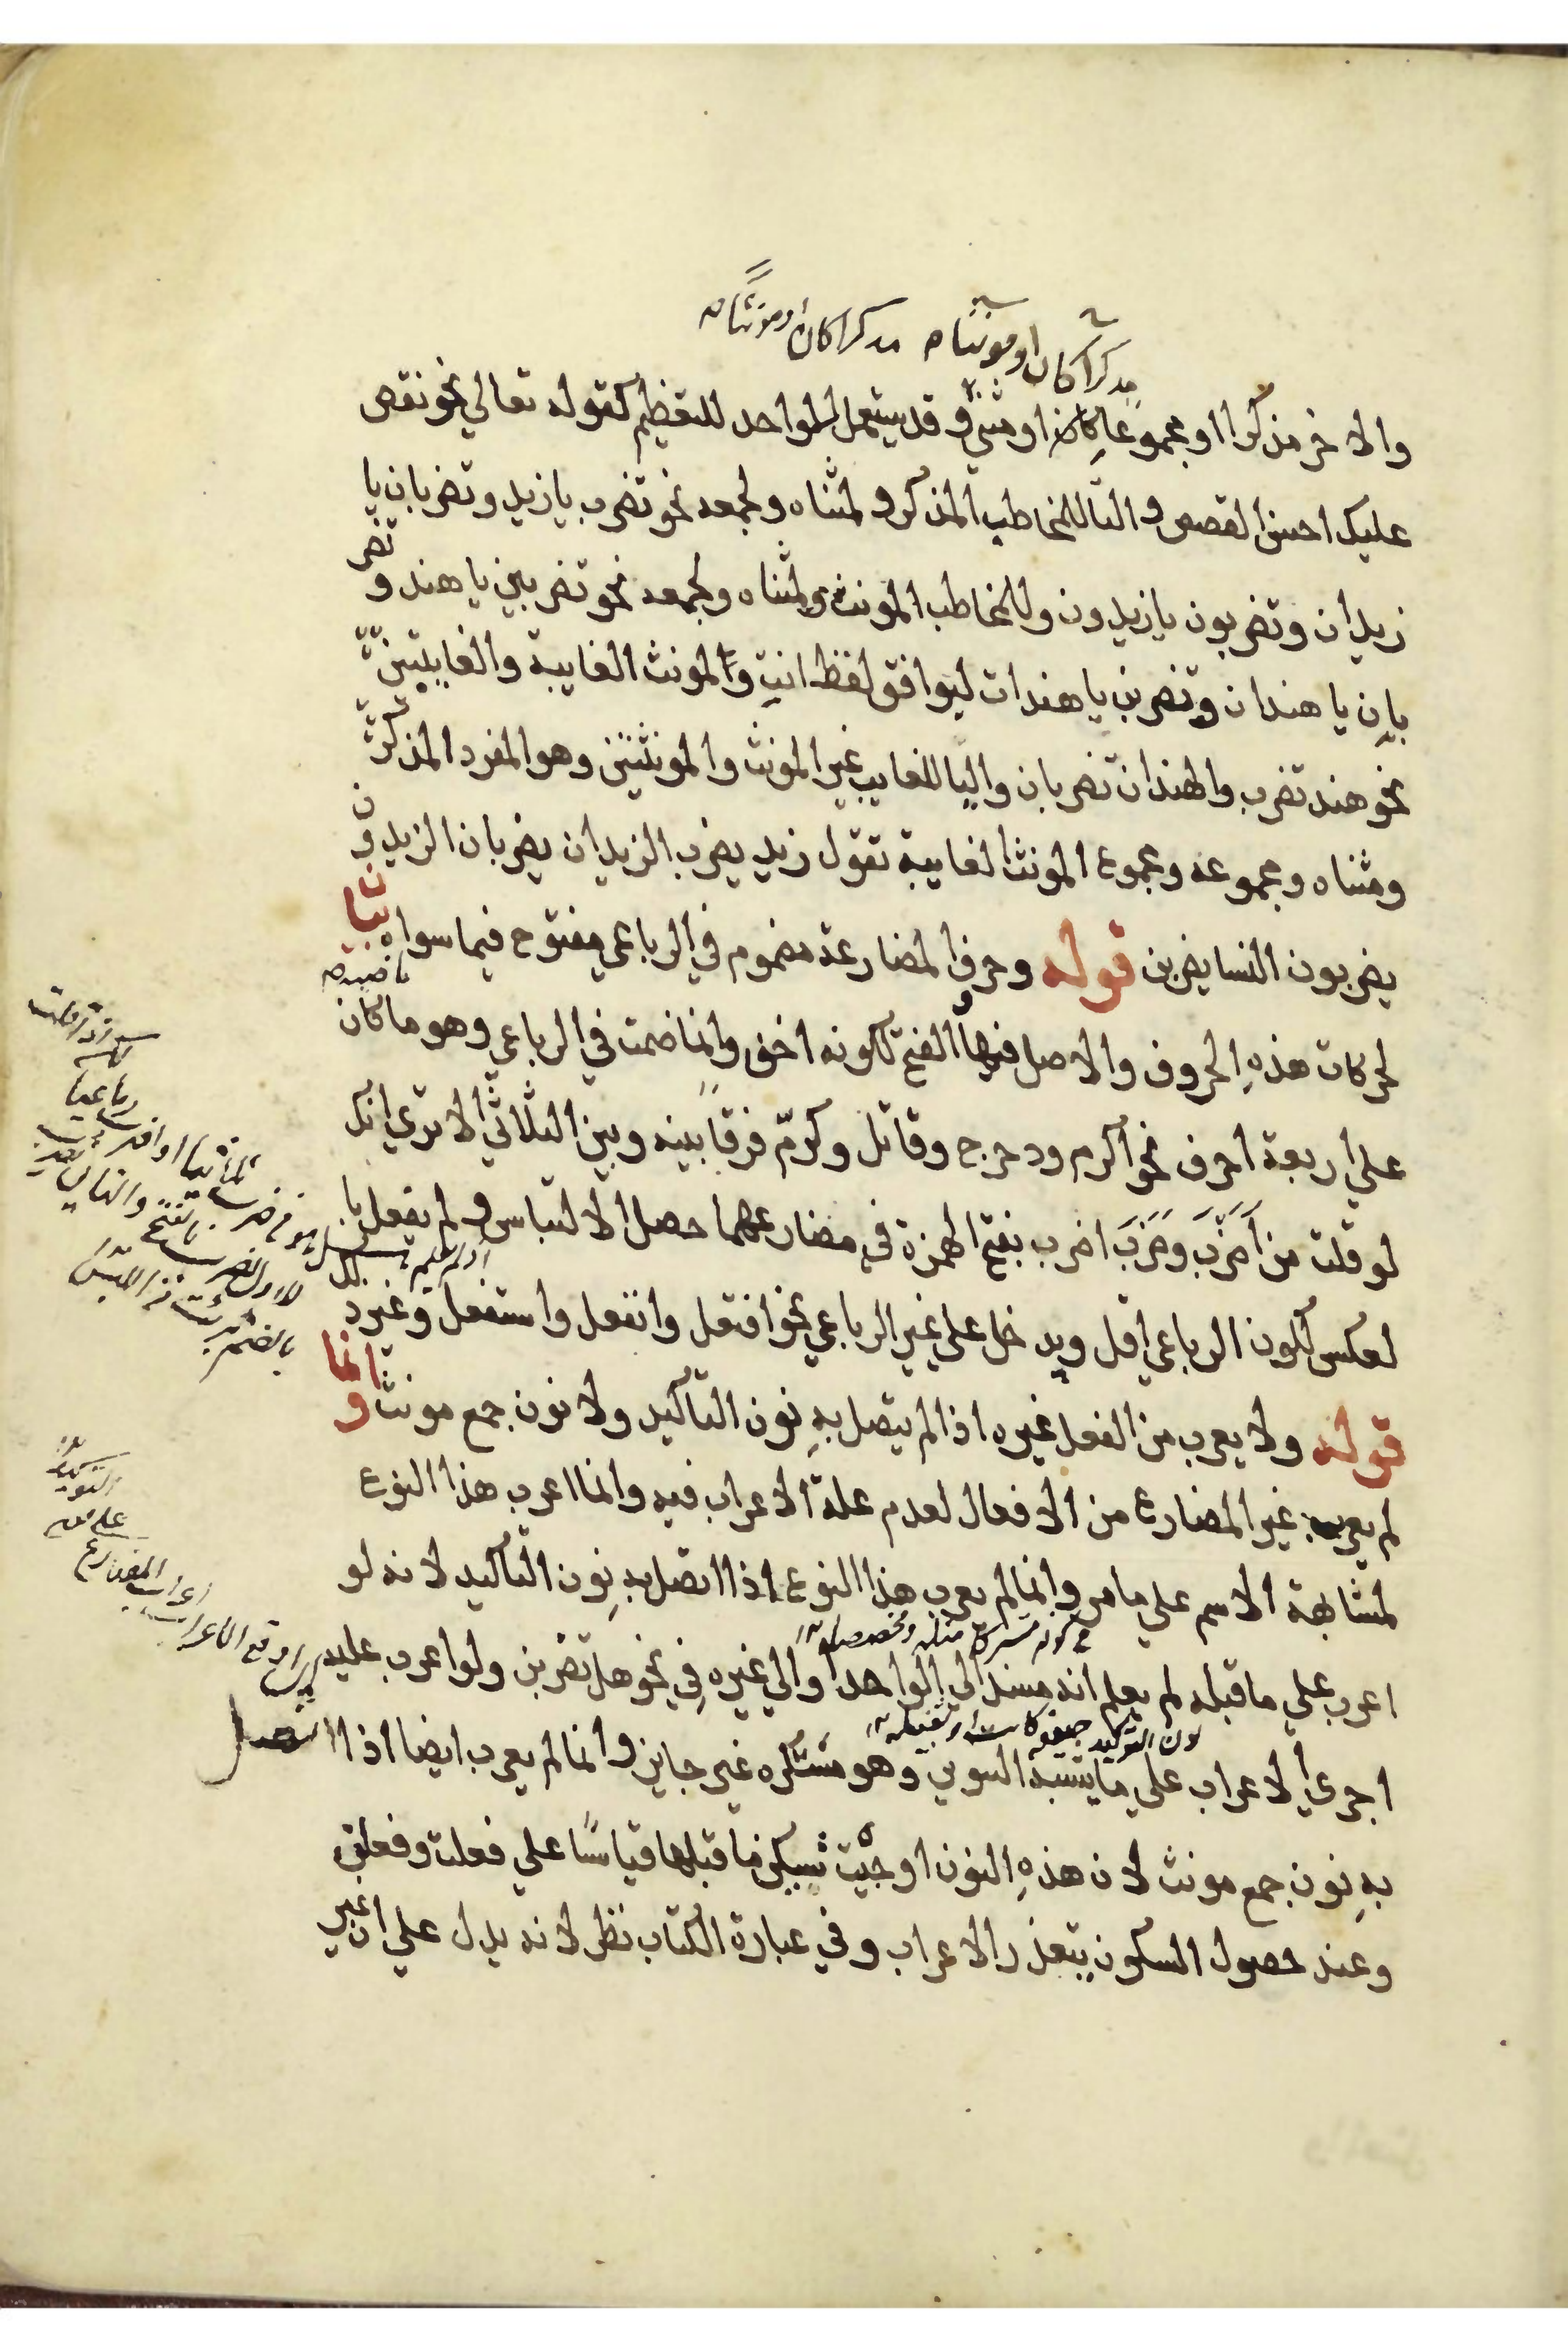 مذكرا كان او مونثا مذكرا كان او مونثا
والاخر مذكرا او مجموعا كان او مثنى و قد يستعمل للواحد للتعظيم كقوله تعالي نحو نقص
عليك احسن القصص و التا للمخاطب المذكر و لمثناه ولجمعه نحو تضرب يا زيد وتضربان يا
زيدان وتضربون يا زيدون وللمخاطب المونث ولمثناه ولجمعه نحو تضربين يا هند و تضر
بان يا هندان وتضربن يا هندات ليوافق لفظ انت وللمونث الغايبة والغايبتين
نحو هند تضرب والهندان تضربان واليا للغايب غير المونث والمونثتين وهو المفرد المذكر
ومثناه ومجموعه ومجموع المونث الغايبة تقول زيد يضرب الزيدان يضربان الزيدون
يضربون النسا يضربن قوله وحرف المضارعة مضموم في الرباعي مفتوح فيما سواه بيان
لحركات هذه الحروف والاصل فيها الفتح لكونه اخف وانما ضمت في الرباعي وهو ما كان ماضيه
علي اربعة احرف نحو اكرم ودحرج وقاتل وكرّم فرقا بينه وبين الثلاثي الا تري انك
لو قلت من اَضرَبَ وضَرَبَ اضرب بفتح الهمزة في مضارعهما حصل الالتباس و لم يفعل با
لعكس لكون الرباعي اقل ويدخل علي غير الرباعي نحو افتعل وانفعل واستفعل وغيره
قوله ولا يعرب من الفعل غيره اذا لم يتصل به نون التاكيد ولا نون جمع مونث وانما
لم يعرب غير المضارع من الافعال لعدم علة الاعراب فيه وانما اعرب هذا النوع
لمشابهة الاسم علي ما مر وانما لم يعرب هذا النوع اذا اتصل به نون التاكيد لانه لو
اعرب علي ما قبله لم يعلم انه مسند الي الواحد او الي غيره في نحو هل تضربن ولو اعرب عليه
لان التوكيد خفيفة كانت او ثقيلة
اجري الاعراب علي ما يشبه التنوين وهو مستكره غير جايز وانما لم يعرب ايضا اذا اتصل
به نون جمع مونث لان هذه النون اوجبت تسكين ما قبلها قياسًا علي فعلت وفعلن
وعند حصول السكون يتعذر الاعراب وفي عبارة الكتاب نظر لانه يدل علي ان غير